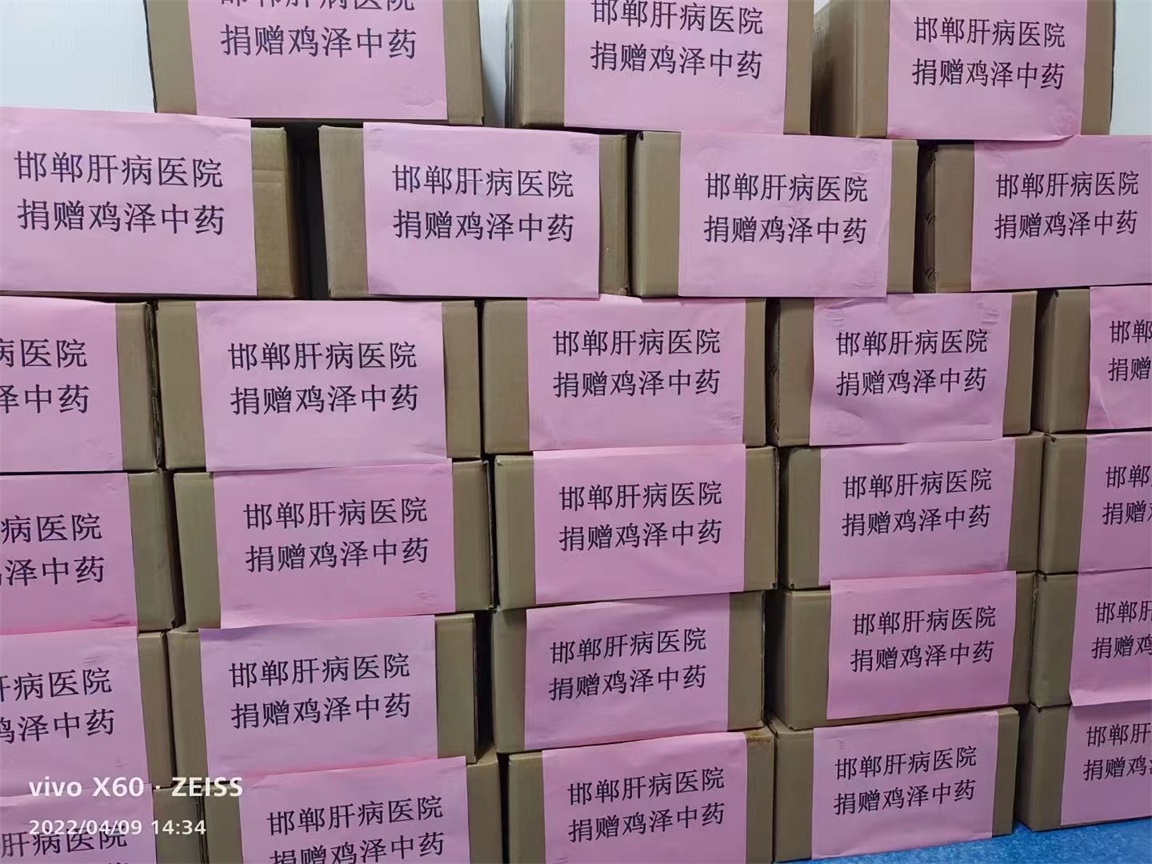 邯郸肝病医院
捐赠鸡泽中药
邯郸肝病医院
捐赠鸡泽中药
邯郸肝病医院
捐赠鸡泽中药
邯郸肝病医院
捐赠鸡泽中药
邯郸肝病医院
捐赠鸡泽中药
邯郸肝病医院
捐赠鸡泽中药
邯郸肝病医院
捐赠鸡泽中药
病医院
泽中药
邯郸肝病医院
捐赠鸡泽中药
邯郸肝病医院
捐赠鸡泽中药
邯郸肝病医院
捐赠鸡泽中药
邯郸
捐赠
病医院
泽中药
邯郸肝病医院
捐赠鸡泽中药
邯郸肝病医院
捐赠鸡泽中药
邯郸肝病医院
捐赠鸡泽中药
邯郸
捐赠
病医院
鸡泽中药
邯郸肝病医院
捐赠鸡泽中药
邯郸肝病医院
捐赠鸡泽中药
邯郸肝病医院
捐赠鸡泽中药
邯郸肝
捐赠鸡
肝病医院
邯郸肝病医院
捐赠鸡泽中药
邯郸肝病医院
捐赠鸡泽中药
邯郸肝病医院
捐赠鸡泽中药
邯郸肝
捐赠鸡
vivo X60 · ZEISS
2022/04/09 14:34